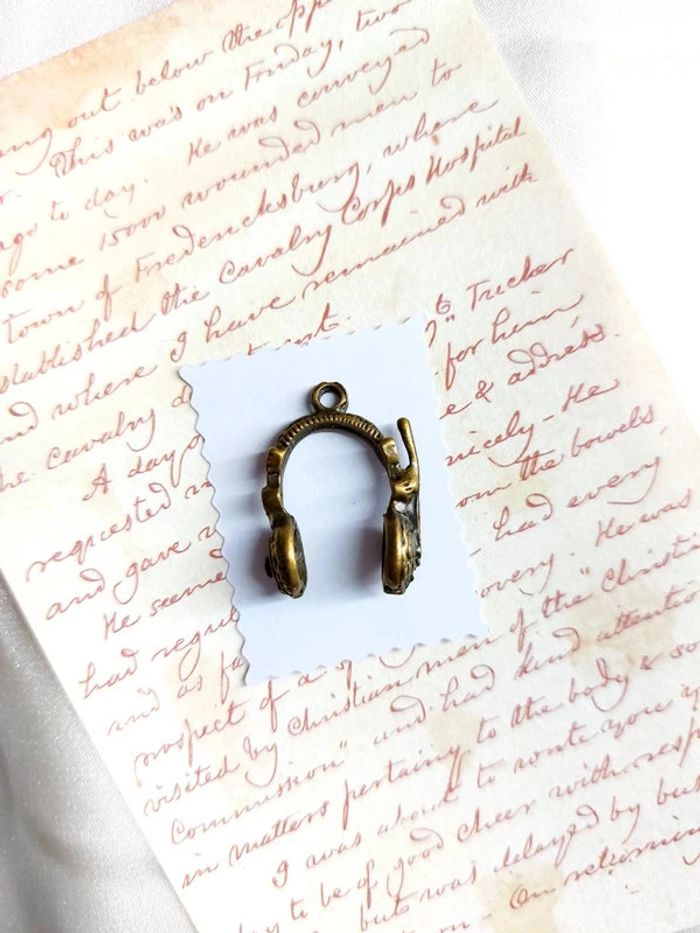 out below the opp
This was on Friday, two
r. He was conveyed
ago to day. 15000 wounded men to
some
town of Fredericksburg, where
stablished the Cavalry Corps Hospital
nd where I have remained with
he cavalry
to" Tucker
A day for him,
requested e & address.
and gave nicely - He
He seemed the bowels,
had regul had every
and as fa overy. He was
prospect of a of the "Christi
visited by Christian men
Commission" and had kind attentio
in matters pertaining to the body & so
I was about to write you
to be of good cheer with resp
but was delayed by bus
On returning